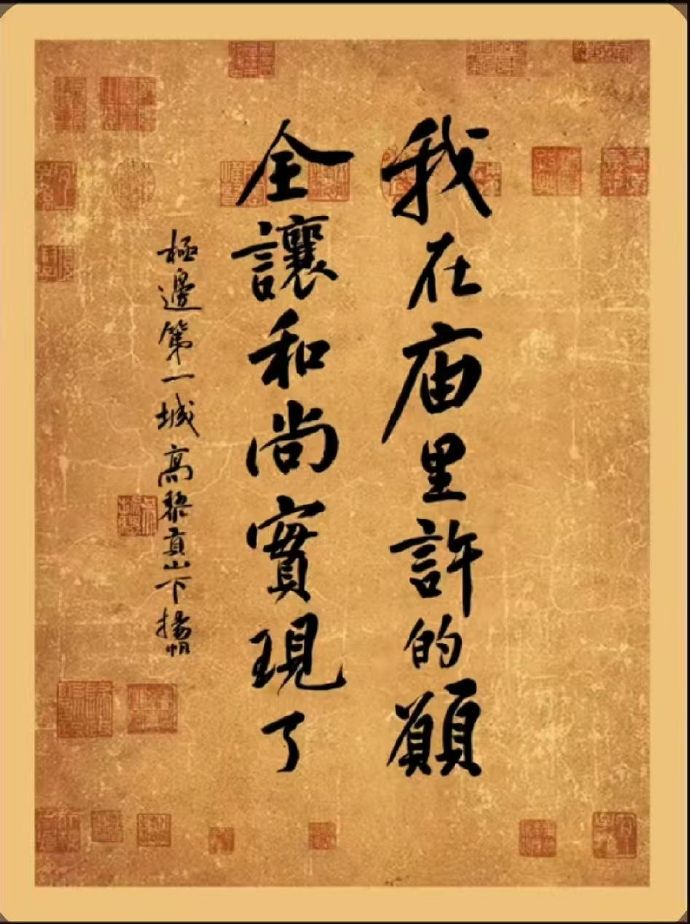 我在庙里許的願
全讓和尚實現了
極邊第一城高黎貢山下揚帆